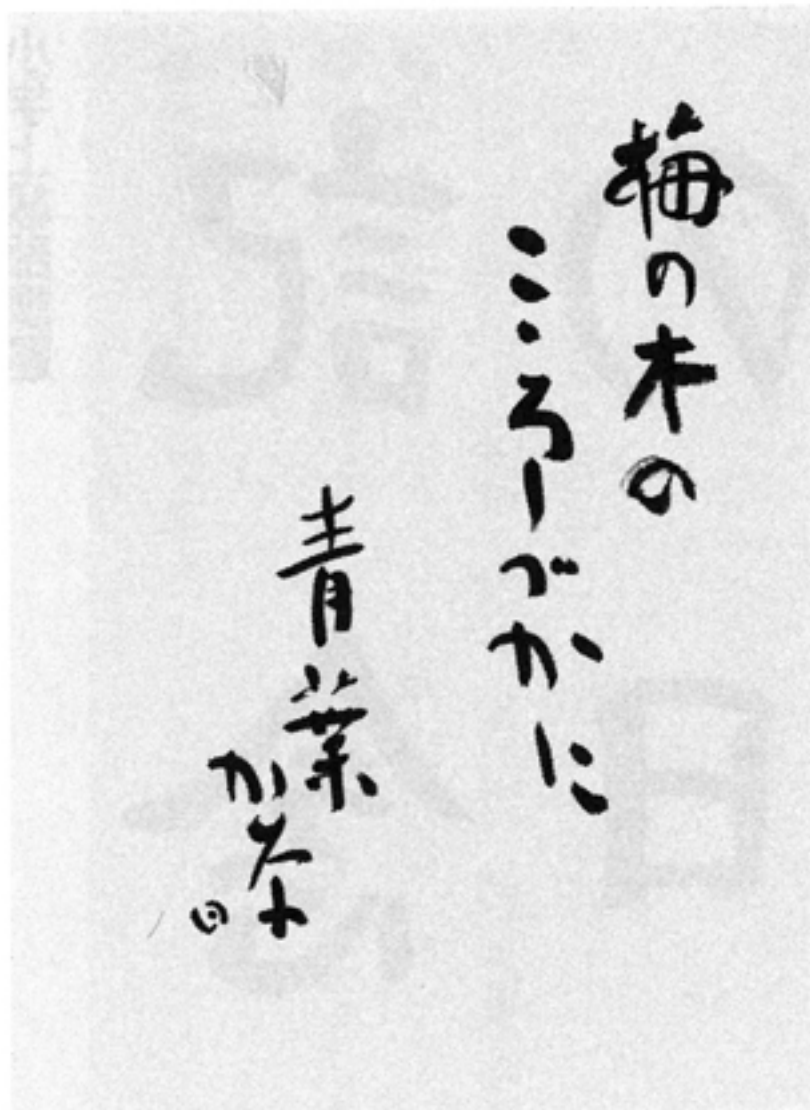 梅の木の
こゝろしづかに
青葉か奈